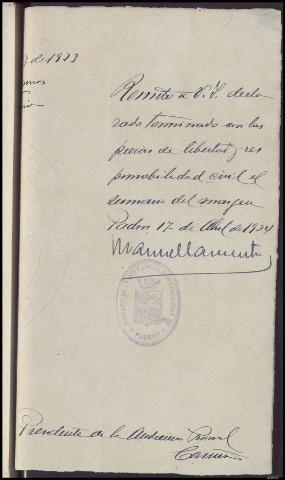 de 1923
Remito a V.S. decla
rado terminado con las
piezas de libertad y res
ponsabilidad civil el
sumario del margen
Padrón 17 de Abril de 1924
JUZGADO DE INSTRUCCIÓN
PADRON
Presidente de la Audiencia Provincial
Coruña